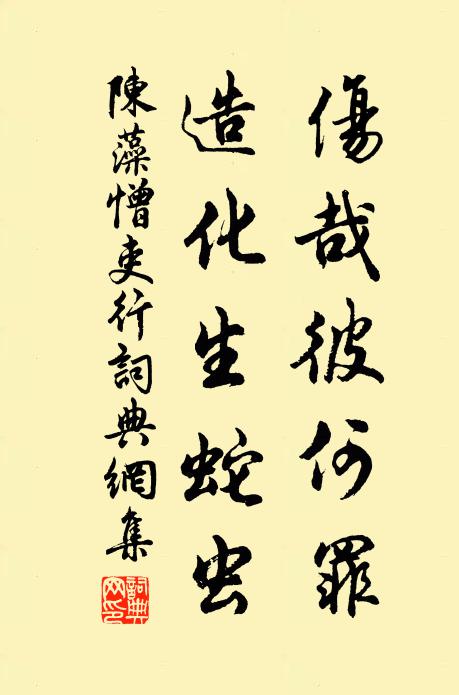 傷哉彼何罪
造化生蛇虫
陳藻憎吏行詞典網集
詞典网印